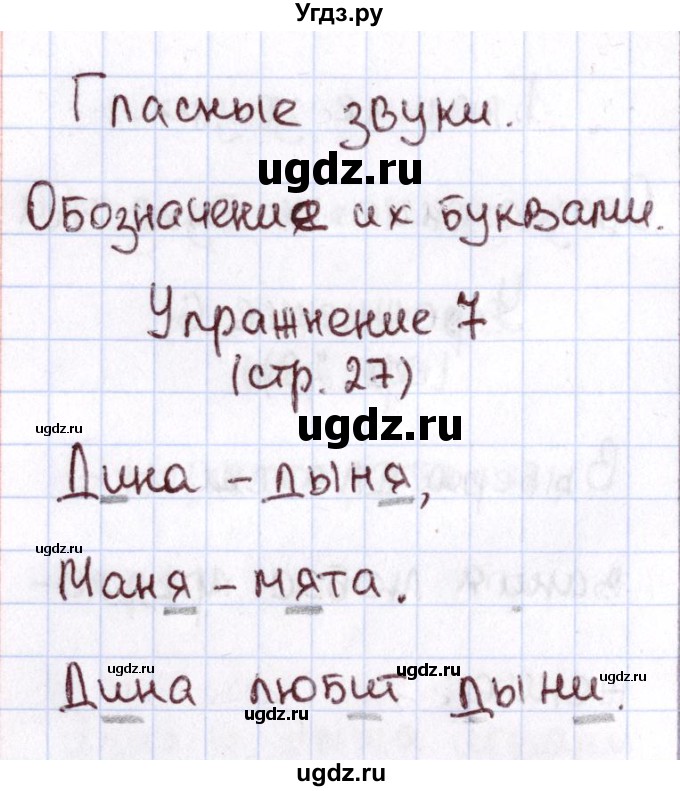 Угдз.ру
Гласные звуки.
ugdz.ru
Обозначение их буквами.
Упражнение 7
(стр. 27)
ugdz.ru
ugdz.ru
Дина - дыня,
ugdz.ru
Маня - мята.
ugdz.ru ugdz.ru
Дина любит дыни.
ugdz.ru
ugdz.ru